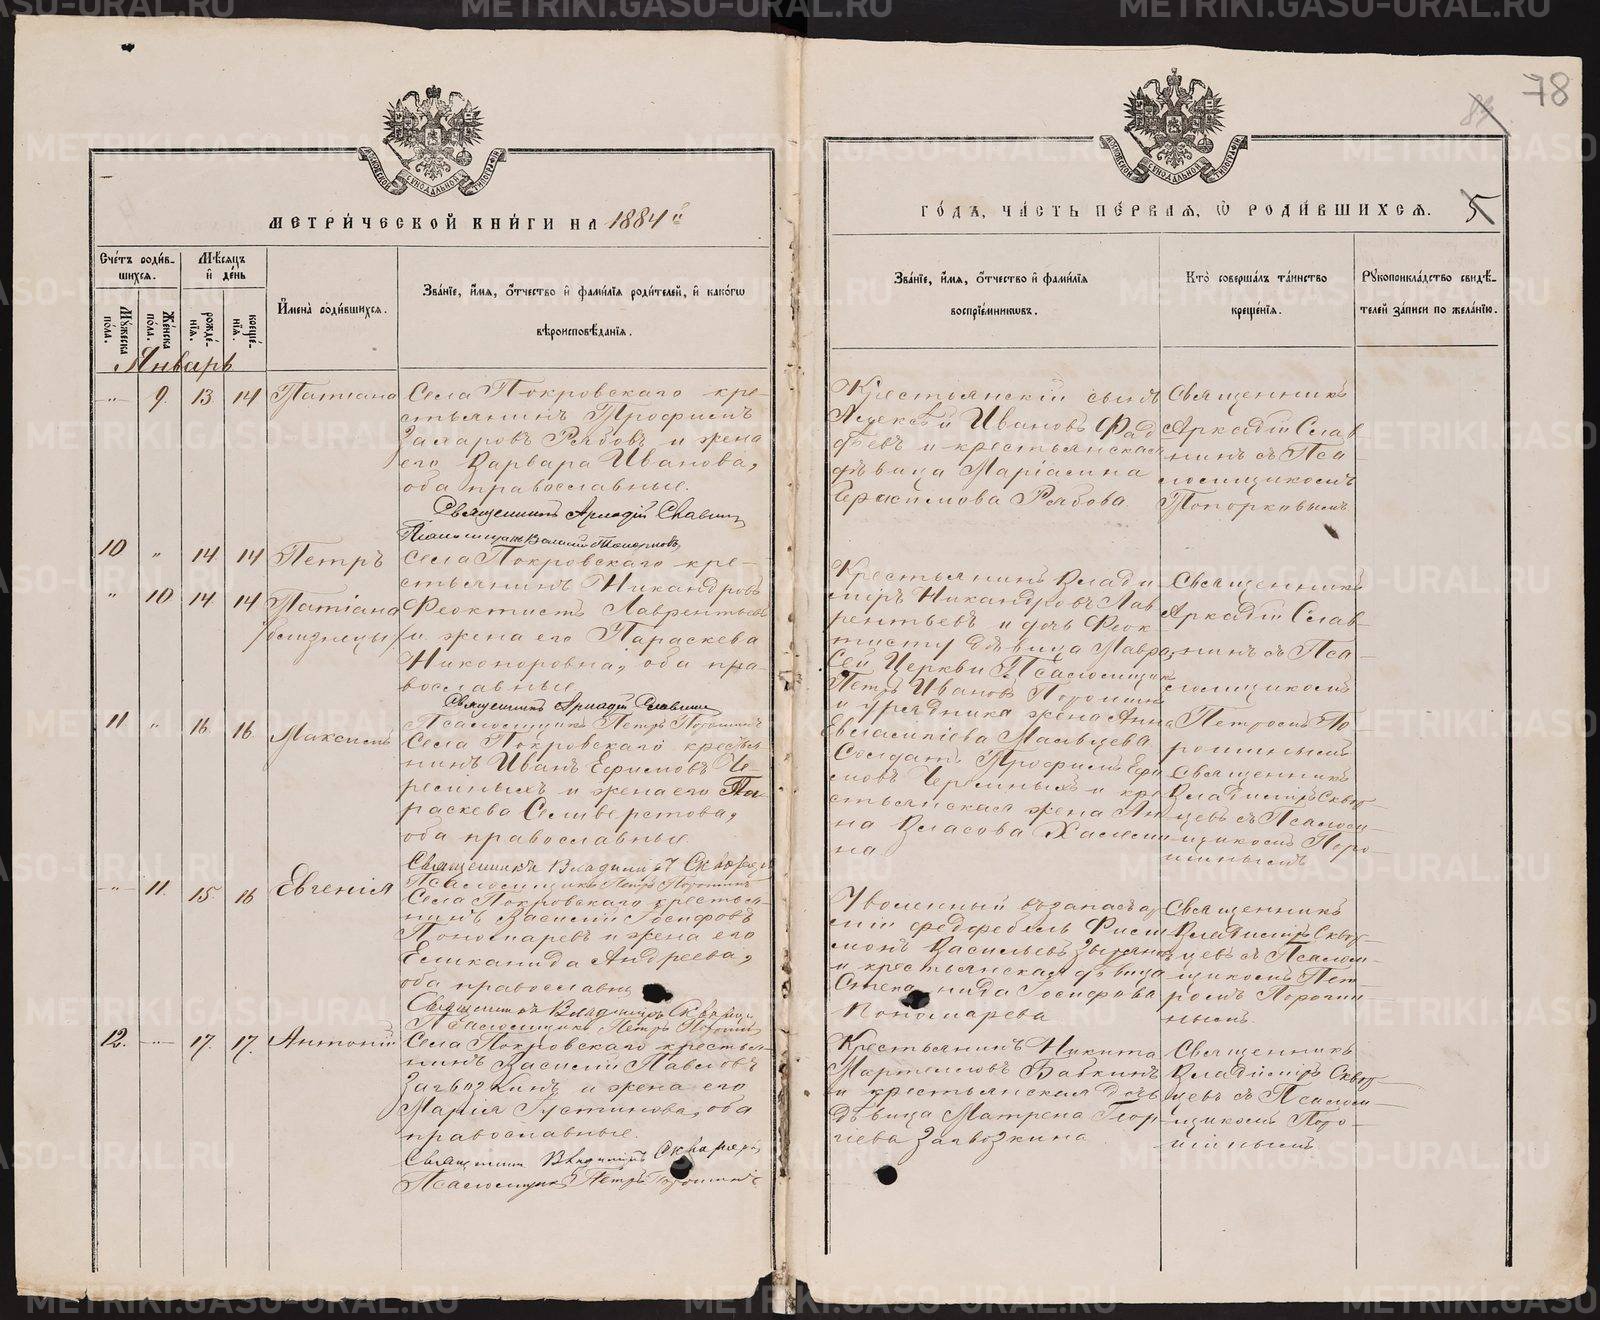 78
МЕТРИ́ЧЕСКОЙ КНИ́ГИ НА 1884й
ГО́ДЪ, ЧА́СТЬ ПЕ́РВАЯ, Ѡ РОДИ́ВШИХСЯ. 5
Сче́тъ роди́в-
шихся.
Мѣ́сяцъ
и де́нь
Му́жеска по́ла.
Же́нска по́ла.
рожде́-
нія.
креще́-
нія.
Имена̀ роди́вшихся.
Зва́ніе, и́мя, о́тчество и фами́лія роди́телей, и како́гѡ
вѣроисповѣ́данія.
Зва́ніе, и́мя, о́тчество и фами́лія
воспріе́мникѡвъ.
Кто̀ соверша́лъ та́инство
креще́нія.
Рукоприкла́дство свидѣ́-
телей за́писи по жела́нію.
Январь
" 9. 13 14 Татіана
Села Покровскаго кре-
стьянинъ Трофимъ
Захаровъ Рябовъ и жена
его Варвара Иванова,
оба православные.
Священникъ Аркадій Славнинъ
Крестьянскій сынъ
Алексѣй Ивановъ Фад
ѣевъ и крестьянская
дѣвица Маріамна
Герасимова Рябова
Священникъ
Аркадій Слав
нинъ съ Пса-
ломщикомъ
Топорковымъ
10 " 14 14 Петръ
" 10 14 14 Татіана
/близнецы/
Села Покровскаго кре-
стьянинъ Никандровъ
Феоктистъ Лаврентьевъ
и жена его Параскева
Никоноровна, оба пра-
вославные
Священникъ Аркадій Славнинъ
Псаломщикъ Петръ Порошинъ
Крестьянинъ Влади
міръ Никандровъ Лав
рентьевъ и дочь Феок
тисту дѣвица Мавра
Сей Церкви Псаломщикъ
Петръ Ивановъ Порошинъ
и урядника жена Анна
Евлампіева Мальцева
Священникъ
Аркадій Слав-
нинъ съ Пса-
ломщикомъ
Петромъ По
рошинымъ
11 " 16 16 Максимъ
Села Покровскаго кресть
нинъ Иванъ Ефимовъ Че-
ремныхъ и жена его Па-
раскева Селиверстова,
оба православные
Священникъ Владиміръ Скворцевъ
Псаломщикъ Петръ Порошинъ
Солдатъ Трофимъ Ефи
мовъ Черемныхъ и кре
стьянская жена Ан
на Власова Халеми
на
Священникъ
Владиміръ Сквор-
цевъ съ Псалом-
щикомъ Поро-
шинымъ
" 11. 15. 16 Евгенія
Села Покровскаго крестья-
нинъ Василій Іосифовъ
Пономаревъ и жена его
Еликанида Андреева,
оба православны
Священникъ Владиміръ Скворцевъ
Псаломщикъ Петръ Порошинъ
Уволенный въ запасъ ар
міи фельдфебель Фили
монъ Васильевъ Зырянъ
и крестьянская дѣвица
Степанида Іосифова
Пономарева
Священникъ
Владиміръ Сквор-
цевъ съ Псалом-
щикомъ Пет-
ромъ Пороши
нымъ.
12. " 17. 17. Антоній
Села Покровскаго крестья-
нинъ Василій Павловъ
Загвозкинъ и жена его
Марія Густинова, оба
православные.
Священникъ Владиміръ Скворцевъ
Псаломщикъ Петръ Порошинъ
Крестьянинъ Никита
Мартемьовъ Бабкинъ
и крестьянская дочь
дѣвица Матрена Геор
гіева Загвозкина
Священникъ
Владиміръ Сквор-
цевъ съ Псалом-
щикомъ Поро-
шинымъ